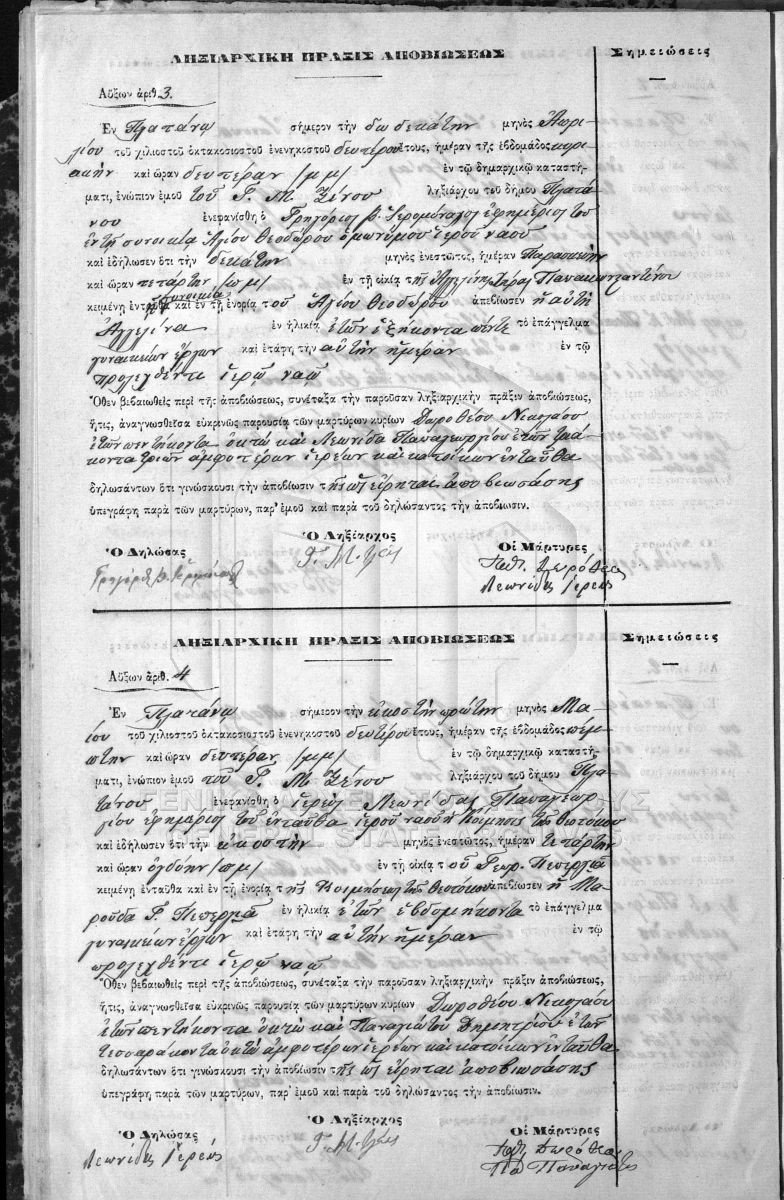 ΛΗΞΙΑΡΧΙΚΗ ΠΡΑΞΙΣ ΑΠΟΒΙΩΣΕΩΣ
Σημειώσεις
Αὔξων ἀριθ. 3.
Ἐν Πλατάνῳ σήμερον τὴν δωδεκάτην μηνὸς Ἀπρι-
λίου τοῦ χιλιοστοῦ ὀκτακοσιοστοῦ ἐνενηκοστοῦ δευτέρου ἔτους, ἡμέραν τῆς ἑβδομάδος κυρι-
ακὴν καὶ ὥραν δευτέραν /μμ/ ἐν τῷ δημαρχικῷ καταστή-
ματι, ἐνώπιον ἐμοῦ τοῦ Γ. Μ. Ζένου ληξιάρχου τοῦ δήμου Πλατά
νου ἐνεφανίσθη ὁ Γρηγόριος Ἱερομόναχος ἐφημέριος τοῦ
ἐν τῇ συνοικίᾳ Ἁγίου Θεοδώρου ὁμωνύμου ἱεροῦ ναοῦ
καὶ ἐδήλωσεν ὅτι τὴν δεκάτην μηνὸς ἐνεστῶτος, ἡμέραν Παρασκευὴν
καὶ ὥραν τετάρτην /πμ/ ἐν τῇ οἰκίᾳ τῆς Ἀγγελίνης χήρας
κειμένῃ ἐνταῦθα συνοικίᾳ καὶ ἐν τῇ ἐνορίᾳ τοῦ Ἁγίου Θεοδώρου ἀπεβίωσεν ἡ αὐτὴ
Ἀγγελίνα ἐν ἡλικίᾳ ἐτῶν ἑξήκοντα πέντε τὸ ἐπάγγελμα
γυναικείων ἔργων καὶ ἐτάφη τὴν αὐτὴν ἡμέραν ἐν τῷ
προλεχθέντι ἱερῷ ναῷ
Ὅθεν βεβαιωθεὶς περὶ τῆς ἀποβιώσεως, συνέταξα τὴν παροῦσαν ληξιαρχικὴν πρᾶξιν ἀποβιώσεως,
ἥτις, ἀναγνωσθεῖσα εὐκρινῶς παρουσίᾳ τῶν μαρτύρων κυρίων Δωροθέου Νικολάου
ἐτῶν πεντήκοντα ὀκτὼ καὶ Λεωνίδα Παπαγεωργίου ἐτῶν τριά-
κοντα τριῶν ἀμφοτέρων ἱερέων καὶ κατοίκων ἐνταῦθα
δηλωσάντων ὅτι γινώσκουσι τὴν ἀποβίωσιν τῆς ὡς εἴρηται ἀποβιωσάσης
ὑπεγράφη παρὰ τῶν μαρτύρων, παρ' ἐμοῦ καὶ παρὰ τοῦ δηλώσαντος τὴν ἀποβίωσιν.
Ὁ Δηλώσας
Ὁ Ληξίαρχος
Οἱ Μάρτυρες
Γ. Μ. Ζένος
Δωρόθεος
Λεωνίδας Ἱερεύς
ΛΗΞΙΑΡΧΙΚΗ ΠΡΑΞΙΣ ΑΠΟΒΙΩΣΕΩΣ
Σημειώσεις
Αὔξων ἀριθ. 4
Ἐν Πλατάνῳ σήμερον τὴν εἰκοστὴν πρώτην μηνὸς Μα-
ΐου τοῦ χιλιοστοῦ ὀκτακοσιοστοῦ ἐνενηκοστοῦ δευτέρου ἔτους, ἡμέραν τῆς ἑβδομάδος πέμ-
πτην καὶ ὥραν δευτέραν /μμ/ ἐν τῷ δημαρχικῷ καταστή-
ματι, ἐνώπιον ἐμοῦ τοῦ Γ. Μ. Ζένου ληξιάρχου τοῦ δήμου Πλα-
τάνου ἐνεφανίσθη ὁ ἱερεὺς Λεωνίδας Παπαγεωρ-
γίου ἐφημέριος τοῦ ἐνταῦθα ἱεροῦ ναοῦ ἡ Κοίμησις τῆς Θεοτόκου
καὶ ἐδήλωσεν ὅτι τὴν εἰκοστὴν μηνὸς ἐνεστῶτος, ἡμέραν τετάρτην
καὶ ὥραν ὀγδόην /πμ/ ἐν τῇ οἰκίᾳ τοῦ Γεωρ. Πεπεργιᾶ
κειμένῃ ἐνταῦθα καὶ ἐν τῇ ἐνορίᾳ τῆς Κοιμήσεως τῆς Θεοτόκου ἀπεβίωσεν ἡ Μα-
ρούδα Γ. Πεπεργιᾶ ἐν ἡλικίᾳ ἐτῶν ἑβδομήκοντα τὸ ἐπάγγελμα
γυναικείων ἔργων καὶ ἐτάφη τὴν αὐτὴν ἡμέραν ἐν τῷ
προλεχθέντι ἱερῷ ναῷ
Ὅθεν βεβαιωθεὶς περὶ τῆς ἀποβιώσεως, συνέταξα τὴν παροῦσαν ληξιαρχικὴν πρᾶξιν ἀποβιώσεως,
ἥτις, ἀναγνωσθεῖσα εὐκρινῶς παρουσίᾳ τῶν μαρτύρων κυρίων Δωροθέου Νικολάου
ἐτῶν πεντήκοντα ὀκτὼ καὶ Παναγιώτου Δημητρίου ἐτῶν
τεσσαράκοντα ὀκτὼ ἀμφοτέρων ἱερέων καὶ κατοίκων ἐνταῦθα
δηλωσάντων ὅτι γινώσκουσι τὴν ἀποβίωσιν τῆς ὡς εἴρηται ἀποβιωσάσης
ὑπεγράφη παρὰ τῶν μαρτύρων, παρ' ἐμοῦ καὶ παρὰ τοῦ δηλώσαντος τὴν ἀποβίωσιν.
Ὁ Δηλώσας
Ὁ Ληξίαρχος
Οἱ Μάρτυρες
Λεωνίδας Ἱερεύς
Γ. Μ. Ζένος
Δωρόθεος
Παναγιώτης
GENERAL STATE ARCHIVES